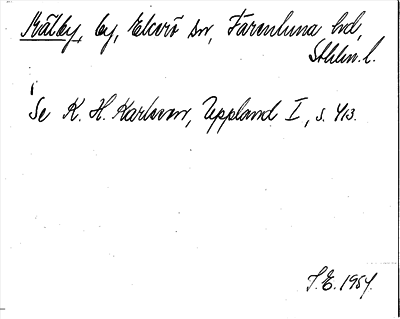 Kälby, by, Ekerö sn, Färentuna hd,
Sthlm. l.
Se K. H. Karlsson, Uppland I, s. 413.
S.E. 1954.